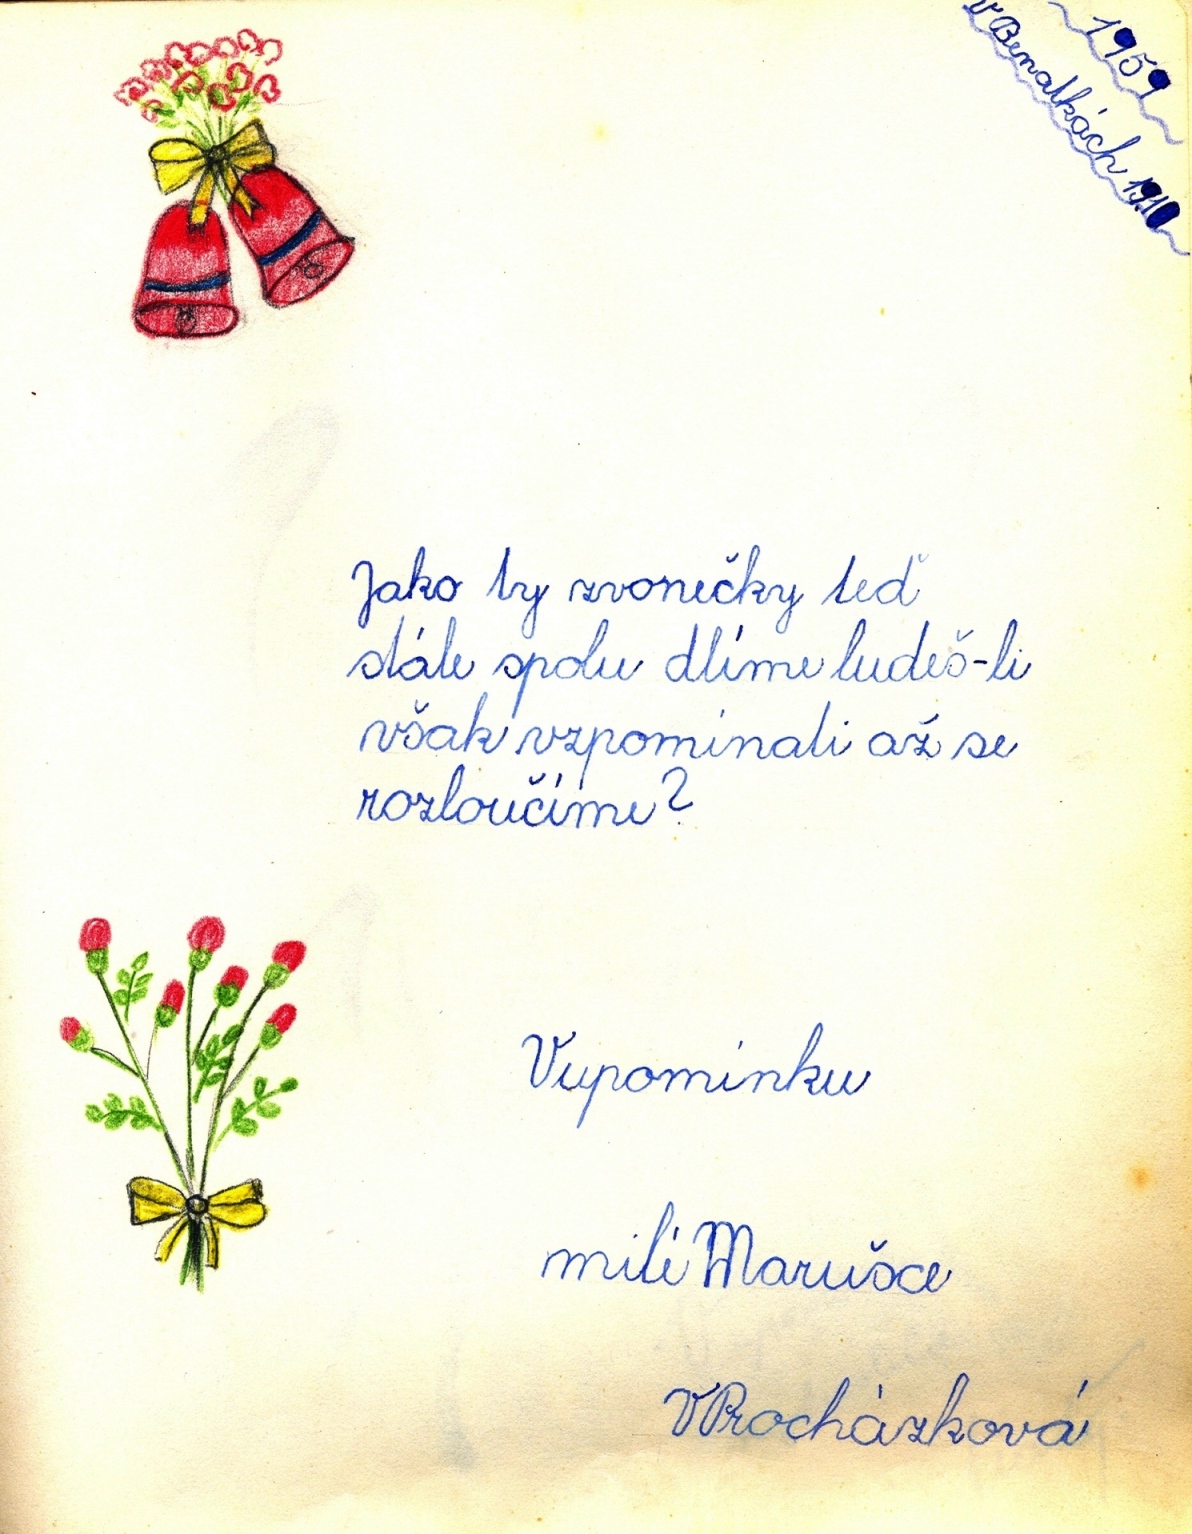 1959
v Benatkách 19.10
Jako ty zvonečky teď
stále spolu dlíme budeš-li
však vzpominati až se
rozloučíme?
Vupomínku
milé Marušce
VProcházková